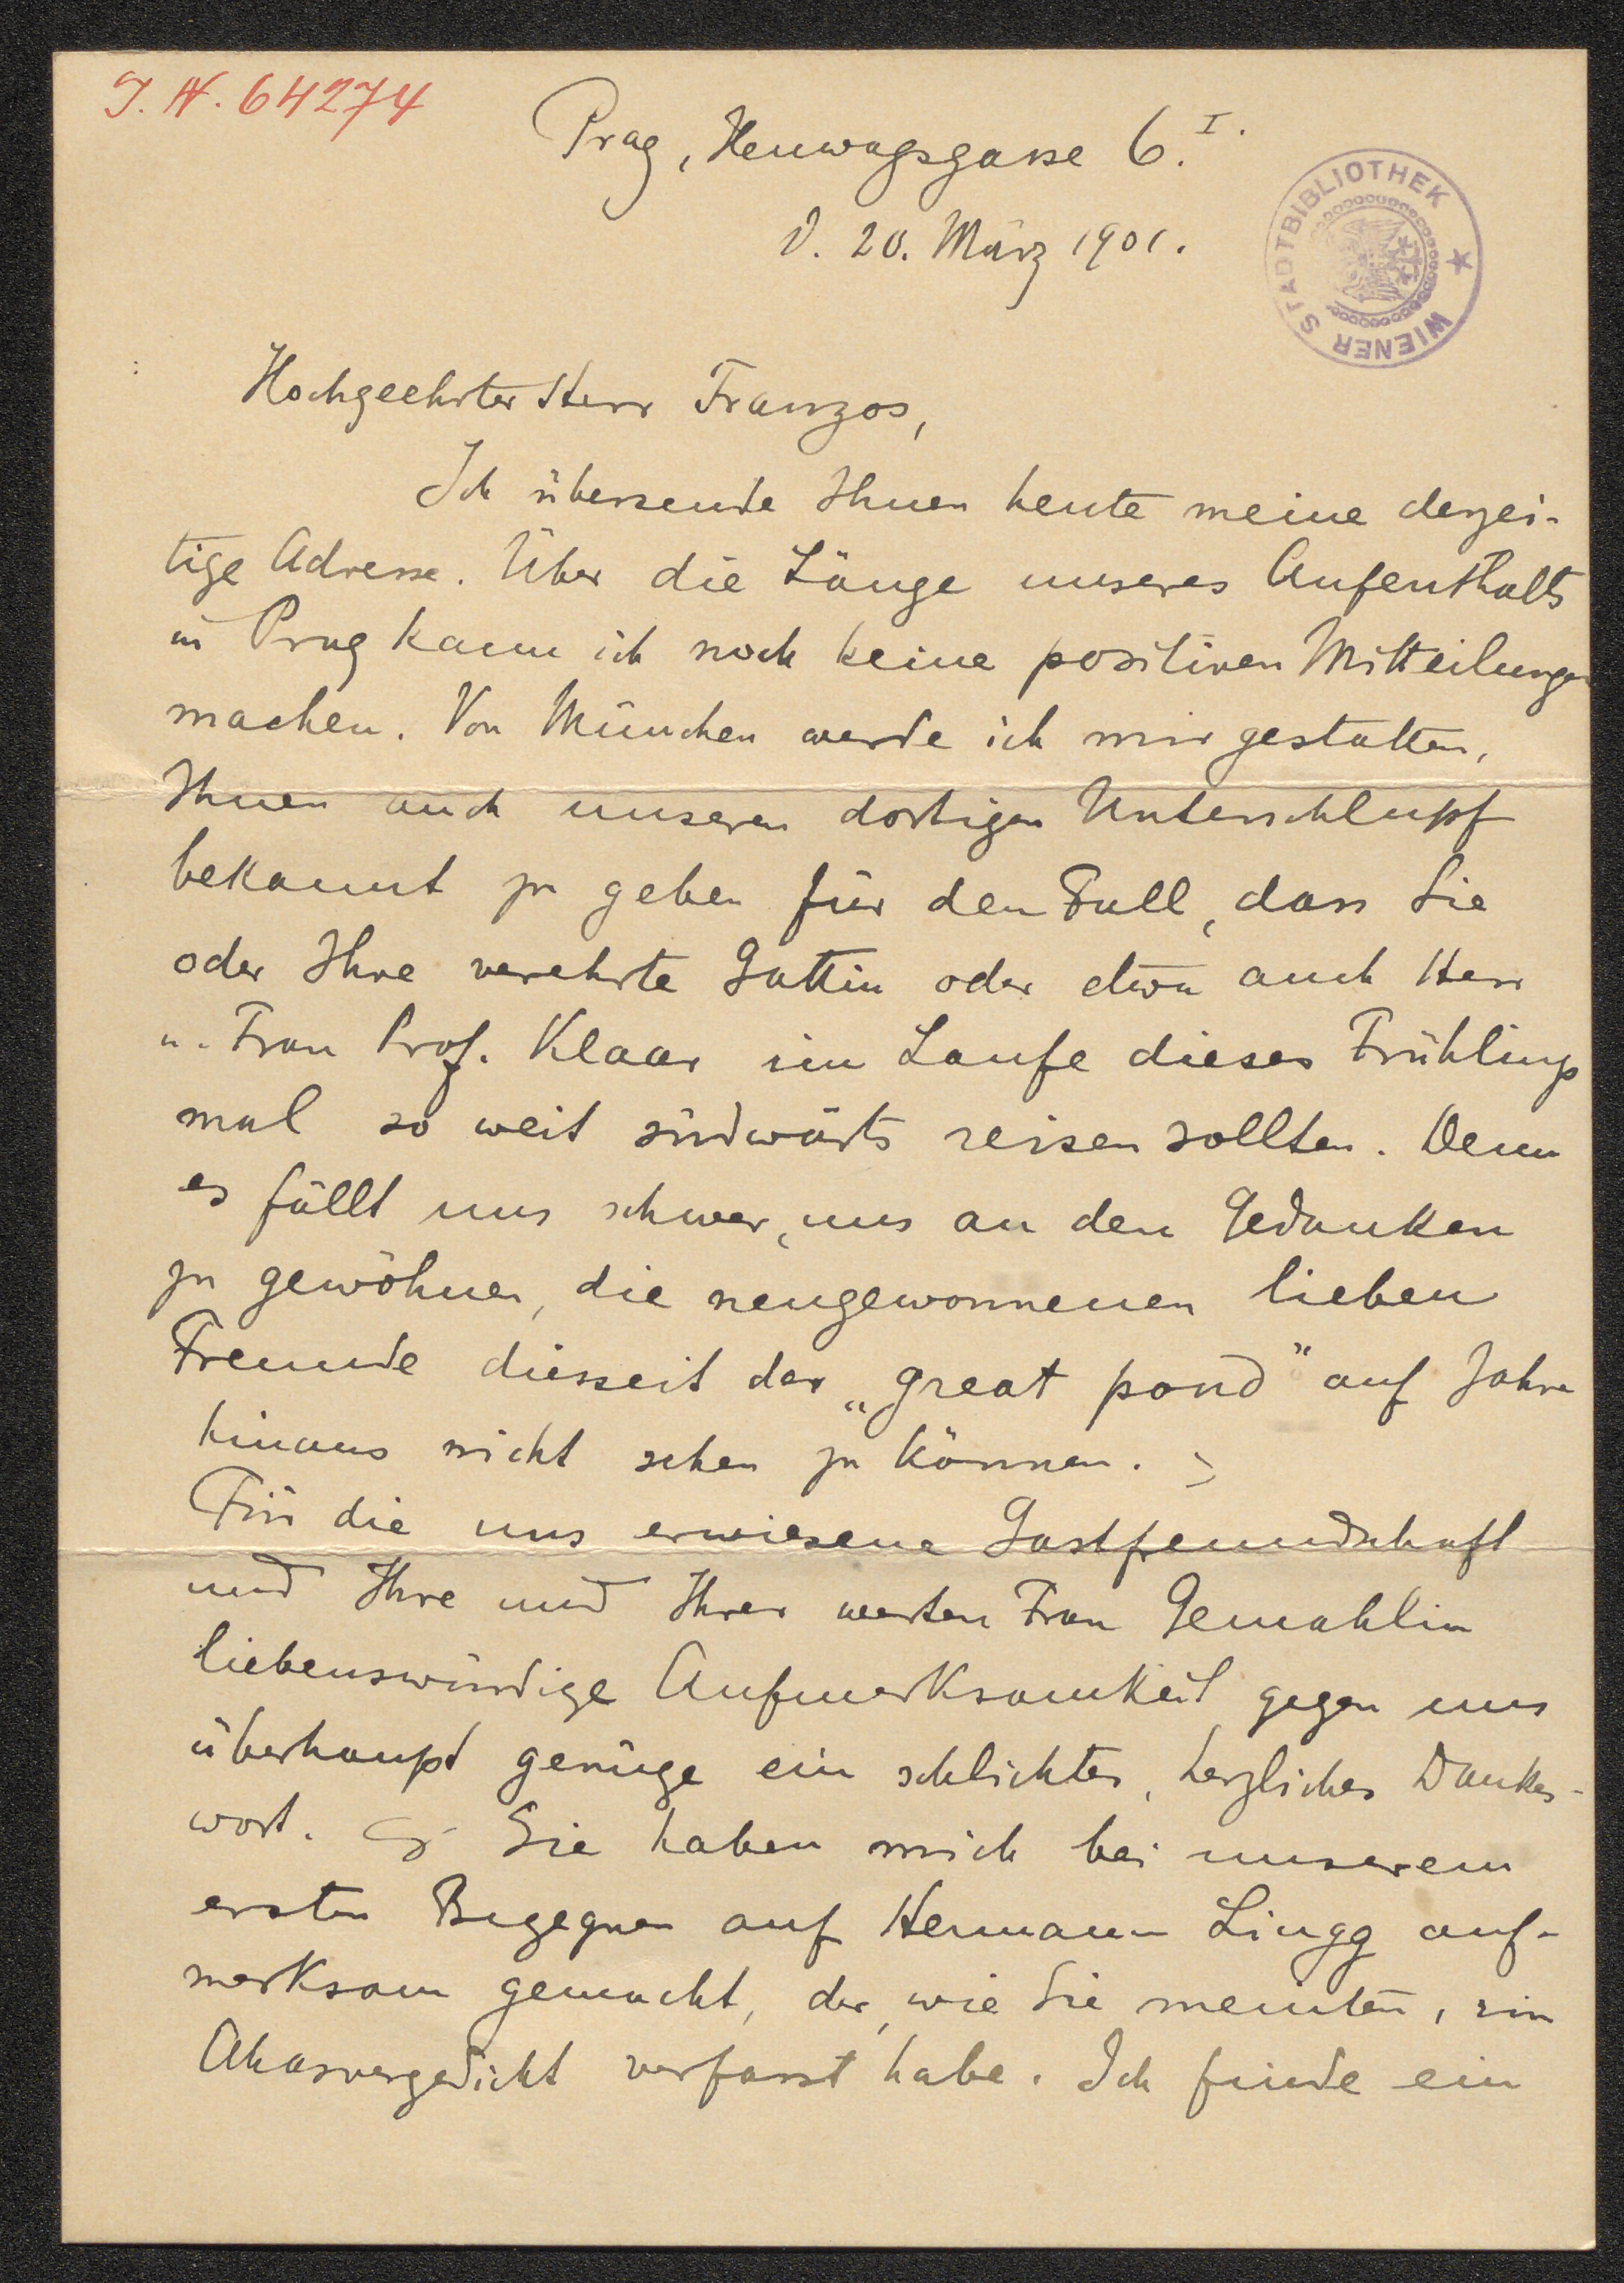 I. N. 64274
Prag, Heuwagsgasse 6.I.
D. 20. März 1901.
WIENER STADTBIBLIOTHEK
Hochgeehrter Herr Franzos,
Ich übersende Ihnen heute meine derzei-
tige Adresse. Über die Länge unseres Aufenthalts
in Prag kann ich noch keine positiven Mitteilungen
machen. Von München werde ich mir gestatten,
Ihnen auch unseren dortigen Unterschlupf
bekannt zu geben für den Fall, dass Sie
oder Ihre verehrte Gattin oder etwa auch Herr
u. Frau Prof. Klaar im Laufe dieses Frühlings
mal so weit südwärts reisen sollten. Denn
es fällt uns schwer, uns an den Gedanken
zu gewöhnen, die neugewonnenen lieben
Freunde diesseit der „great pond" auf Jahre
hinaus nicht sehen zu können.
Für die uns erwiesene Gastfreundschaft
und Ihre und Ihrer werten Frau Gemahlin
liebenswürdige Aufmerksamkeit gegen uns
überhaupt genüge ein schlichtes, herzliches Dankes-
wort. Sie haben mich bei unserem
ersten Begegnen auf Hermann Lingg auf-
merksam gemacht, der, wie Sie meinten, ein
Ahasvergedicht verfasst habe. Ich finde ein